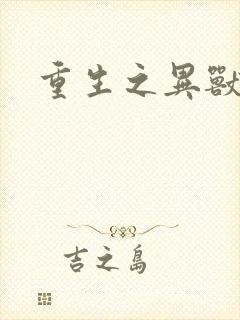 重生之異獸
吉之島